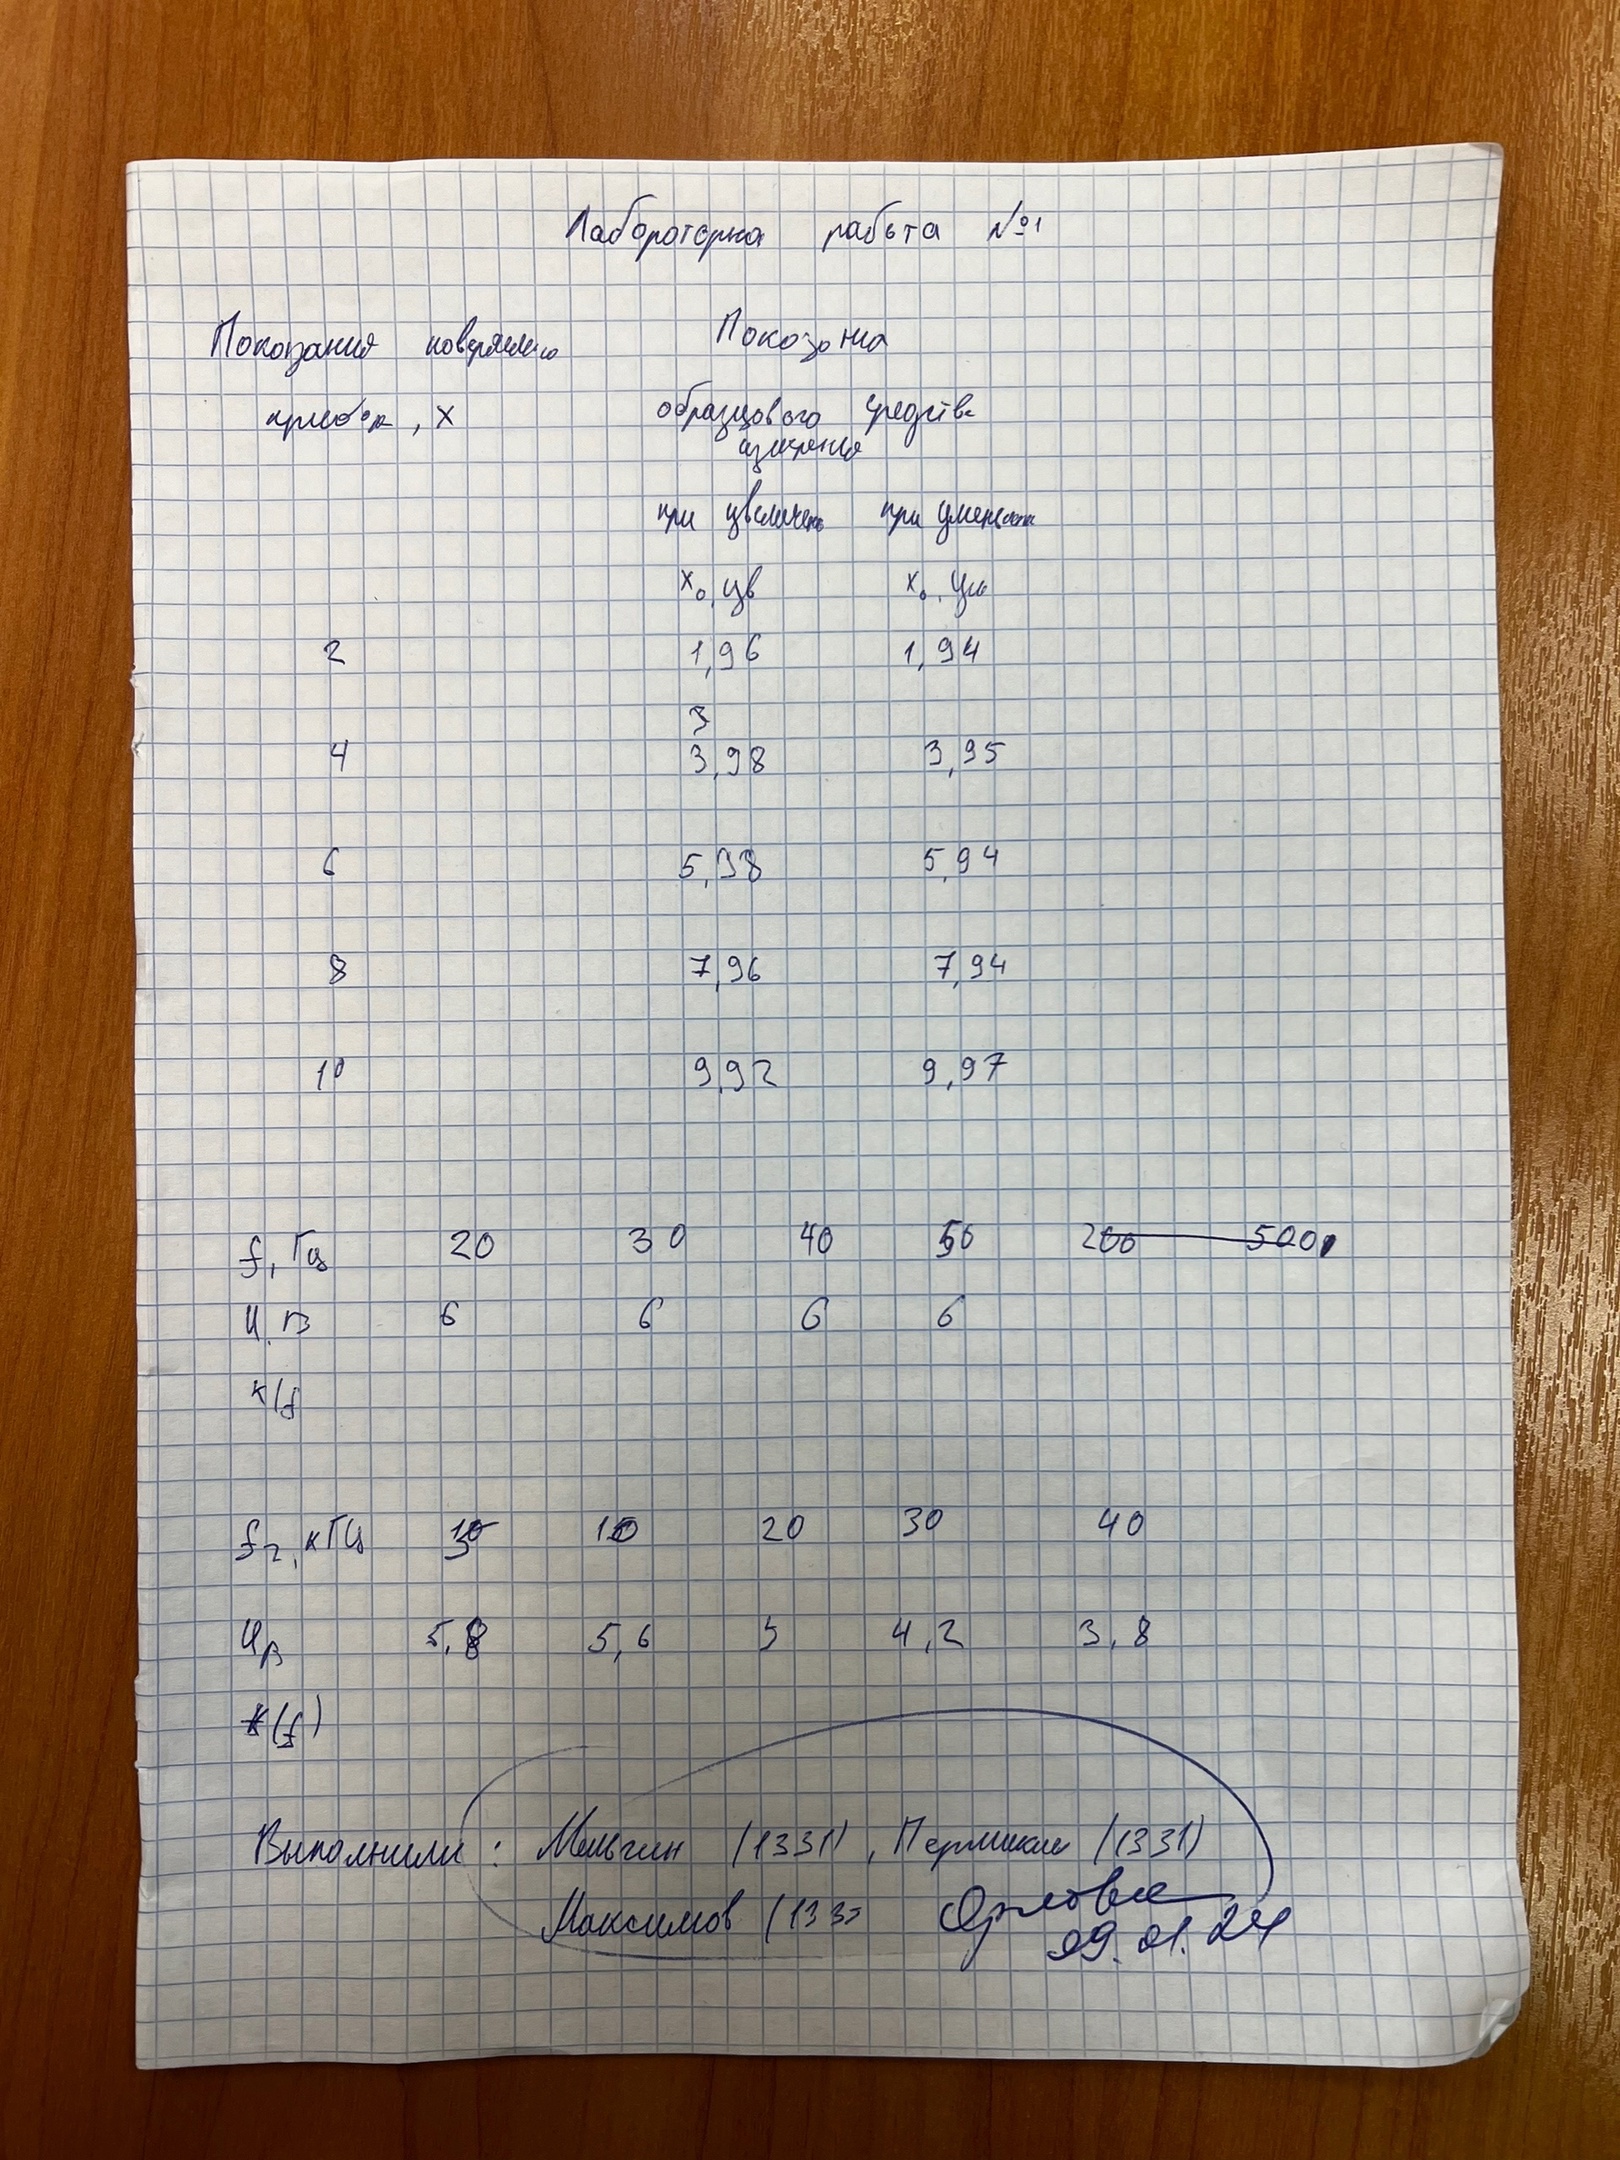 Лабораторка работа №1
Показания поверяемого Показания
прибора, x образцового средства
измерения
при увеличен при уменьшен
x₀, ув x₀, ум
2 1,96 1,94
3
4 3,98 3,95
6 5,98 5,94
8 7,96 7,94
10 9,92 9,97
f, Гц 20 30 40 50 200 500
U, В 6 6 6 6
K(f
f₂, кГц 10 20 30 40
U, В 5,8 5,6 5 4,2 3,8
K(f)
Выполнили: Мельгин (1331), Пермикин (1331)
Максимов (133
09.01.24